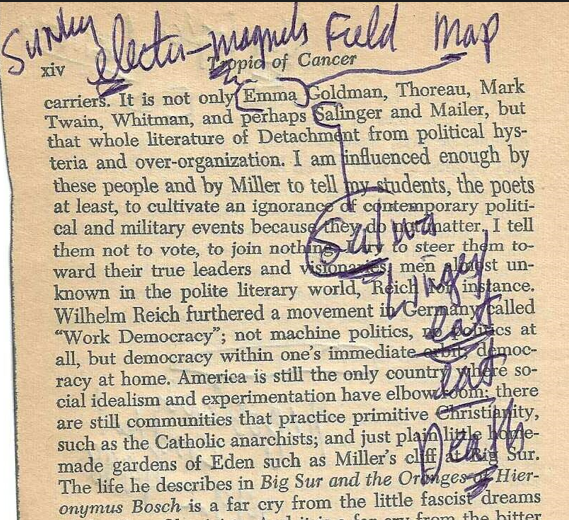 Sunday
electro-magnets Field Map
xiv Tropic of Cancer
carriers. It is not only Emma Goldman, Thoreau, Mark
Twain, Whitman, and perhaps Salinger and Mailer, but
that whole literature of Detachment from political hys-
teria and over-organization. I am influenced enough by
these people and by Miller to tell my students, the poets
at least, to cultivate an ignorance of contemporary politi-
cal and military events because they do not matter. I tell
them not to vote, to join nothing. I try to steer them to-
ward their true leaders and visionaries, men almost un-
known in the polite literary world, Reich for instance.
Wilhelm Reich furthered a movement in Germany called
“Work Democracy”; not machine politics, no politics at
all, but democracy within one's immediate orbit, democ-
racy at home. America is still the only country where so-
cial idealism and experimentation have elbow room: there
are still communities that practice primitive Christianity,
such as the Catholic anarchists; and just plain little home-
made gardens of Eden such as Miller's cliff at Big Sur.
The life he describes in Big Sur and the Oranges of Hier-
onymus Bosch is a far cry from the little fascist dreams
eat
eat
Death